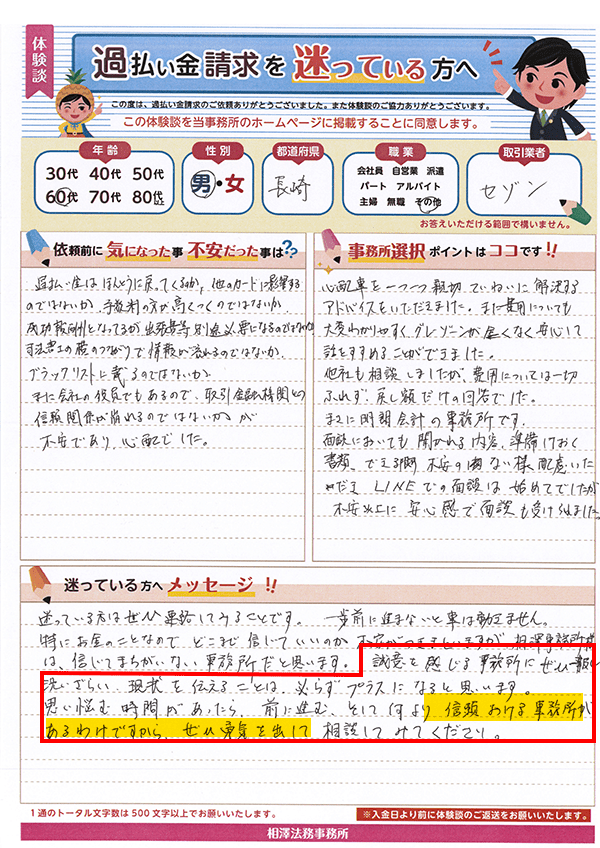 体験談
過払い金請求を迷っている方へ
この度は、過払い金請求のご依頼ありがとうございました。また体験談のご協力ありがとうございます。
この体験談を当事務所のホームページに掲載することに同意します。
年齢
30代 40代 50代
60代 70代 80代
性別
男・女
都道府県
長崎
職業
会社員 自営業 派遣
パート アルバイト
主婦 無職 その他
取引業者
セゾン
お答えいただける範囲で構いません。
依頼前に気になった事 不安だった事は??
過払い金はほんとうに戻ってくるか、他のカードに影響する
のではないか 手数料の方が高くつくのではないか
成功報酬となってるが出張費等別途必要になるのではないか
司法書士の横のつながりで情報が流れるのではないか
ブラックリストに載るのではないか
また会社の役員でもあるので、取引金融機関との
信頼関係が崩れるのではないかが
不安であり、心配でした。
事務所選択ポイントはココです!!
心配事を一つ一つ親切、ていねいに解決する
アドバイスをいただきました。また費用についても
大変わかりやすく グレーゾーンが全くなく安心して
話をすすめることができました。
他社も相談しましたが、費用については一切
ふれず、戻し額だけの回答でした。
まさに明朗会計の事務所です。
面談においても 聞かれる内容、準備しておく
書類、できる限り不安の無い様配慮いた
だき LINEでの面談は始めてでしたが
不安以上に安心感で面談も受けられました。
迷っている方へメッセージ!!
迷っている方はぜひ連絡してみることです。 一歩前に進まないと事は動きません。
特にお金のことなので どこまで信じていいのか 不安がつきまといますが 相澤事務所
は、信じてまちがいない事務所だと思います。 誠意を感じる事務所にぜひ一報し
洗いざらい 現状を伝えることは、必らずプラスになると思います。
思い悩む時間があったら、前に進む、そして何より信頼おける事務所が
あるわけですから、ぜひ勇気を出して相談してみてください。
1通のトータル文字数は500文字以上でお願いいたします。
※入金日より前に体験談のご返送をお願いいたします。
相澤法務事務所